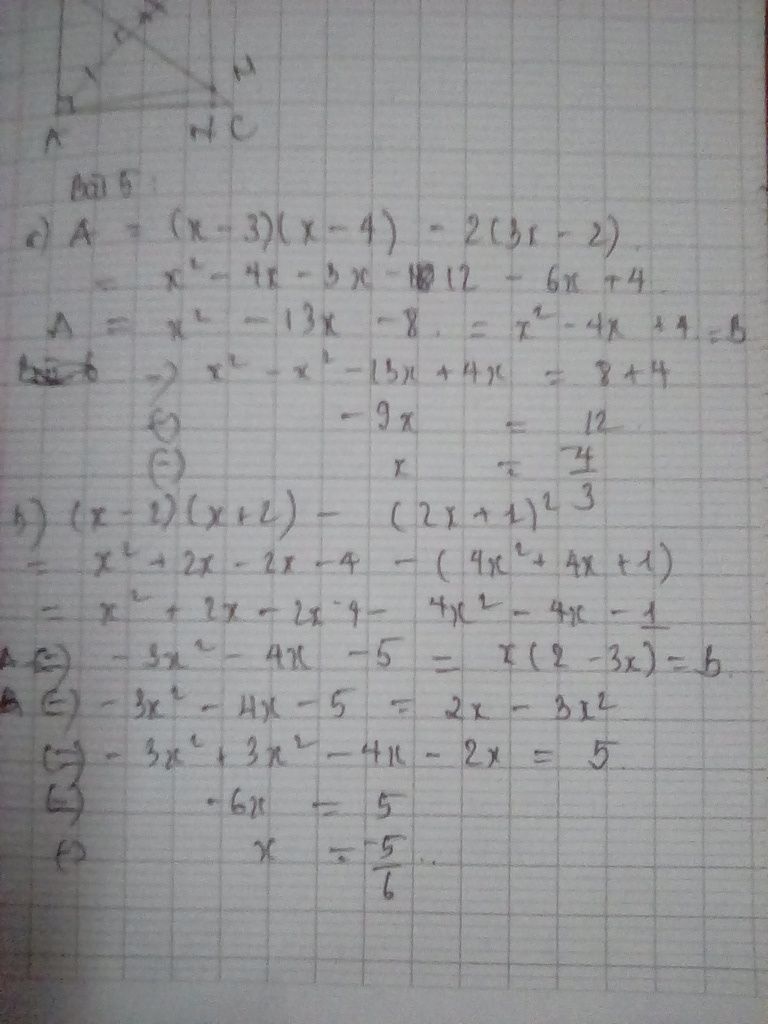 A
N C
Bài 5
A = (x - 3)(x - 4) - 2(3x - 2).
= x² - 4x - 3x - 12 - 6x + 4
A = x² - 13x - 8. = x² - 4x + 4 = B
→ x² - x² - 13x + 4x = 8 + 4
(=) - 9x = 12
(=) x = -4/3
b) (x - 2)(x + 2) - (2x + 1)²
= x² + 2x - 2x - 4 - (4x² + 4x + 1)
= x² + 2x - 2x - 4 - 4x² - 4x - 1
A (=) - 3x² - 4x - 5 = x(2 - 3x) = B.
(=) - 3x² - 4x - 5 = 2x - 3x²
(=) - 3x² + 3x² - 4x - 2x = 5
(=) - 6x = 5
(=) x = -5/6 ..